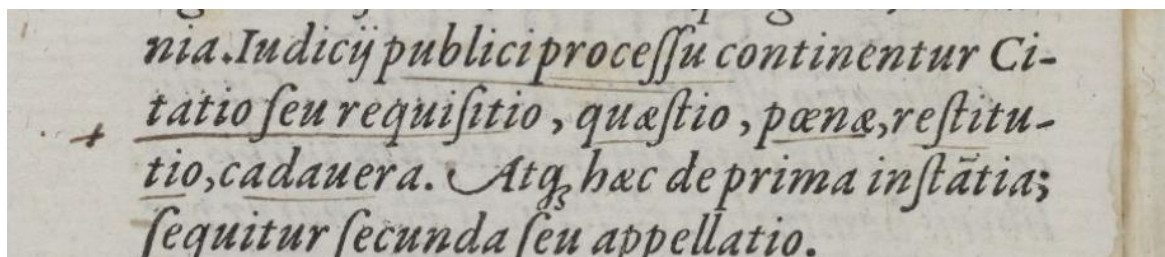 nia. Iudicij publici processu continentur Ci-
tatio seu requisitio, quæstio, pœnæ, restitu-
tio, cadauera. Atq; hæc de prima instãtia;
sequitur secunda seu appellatio.